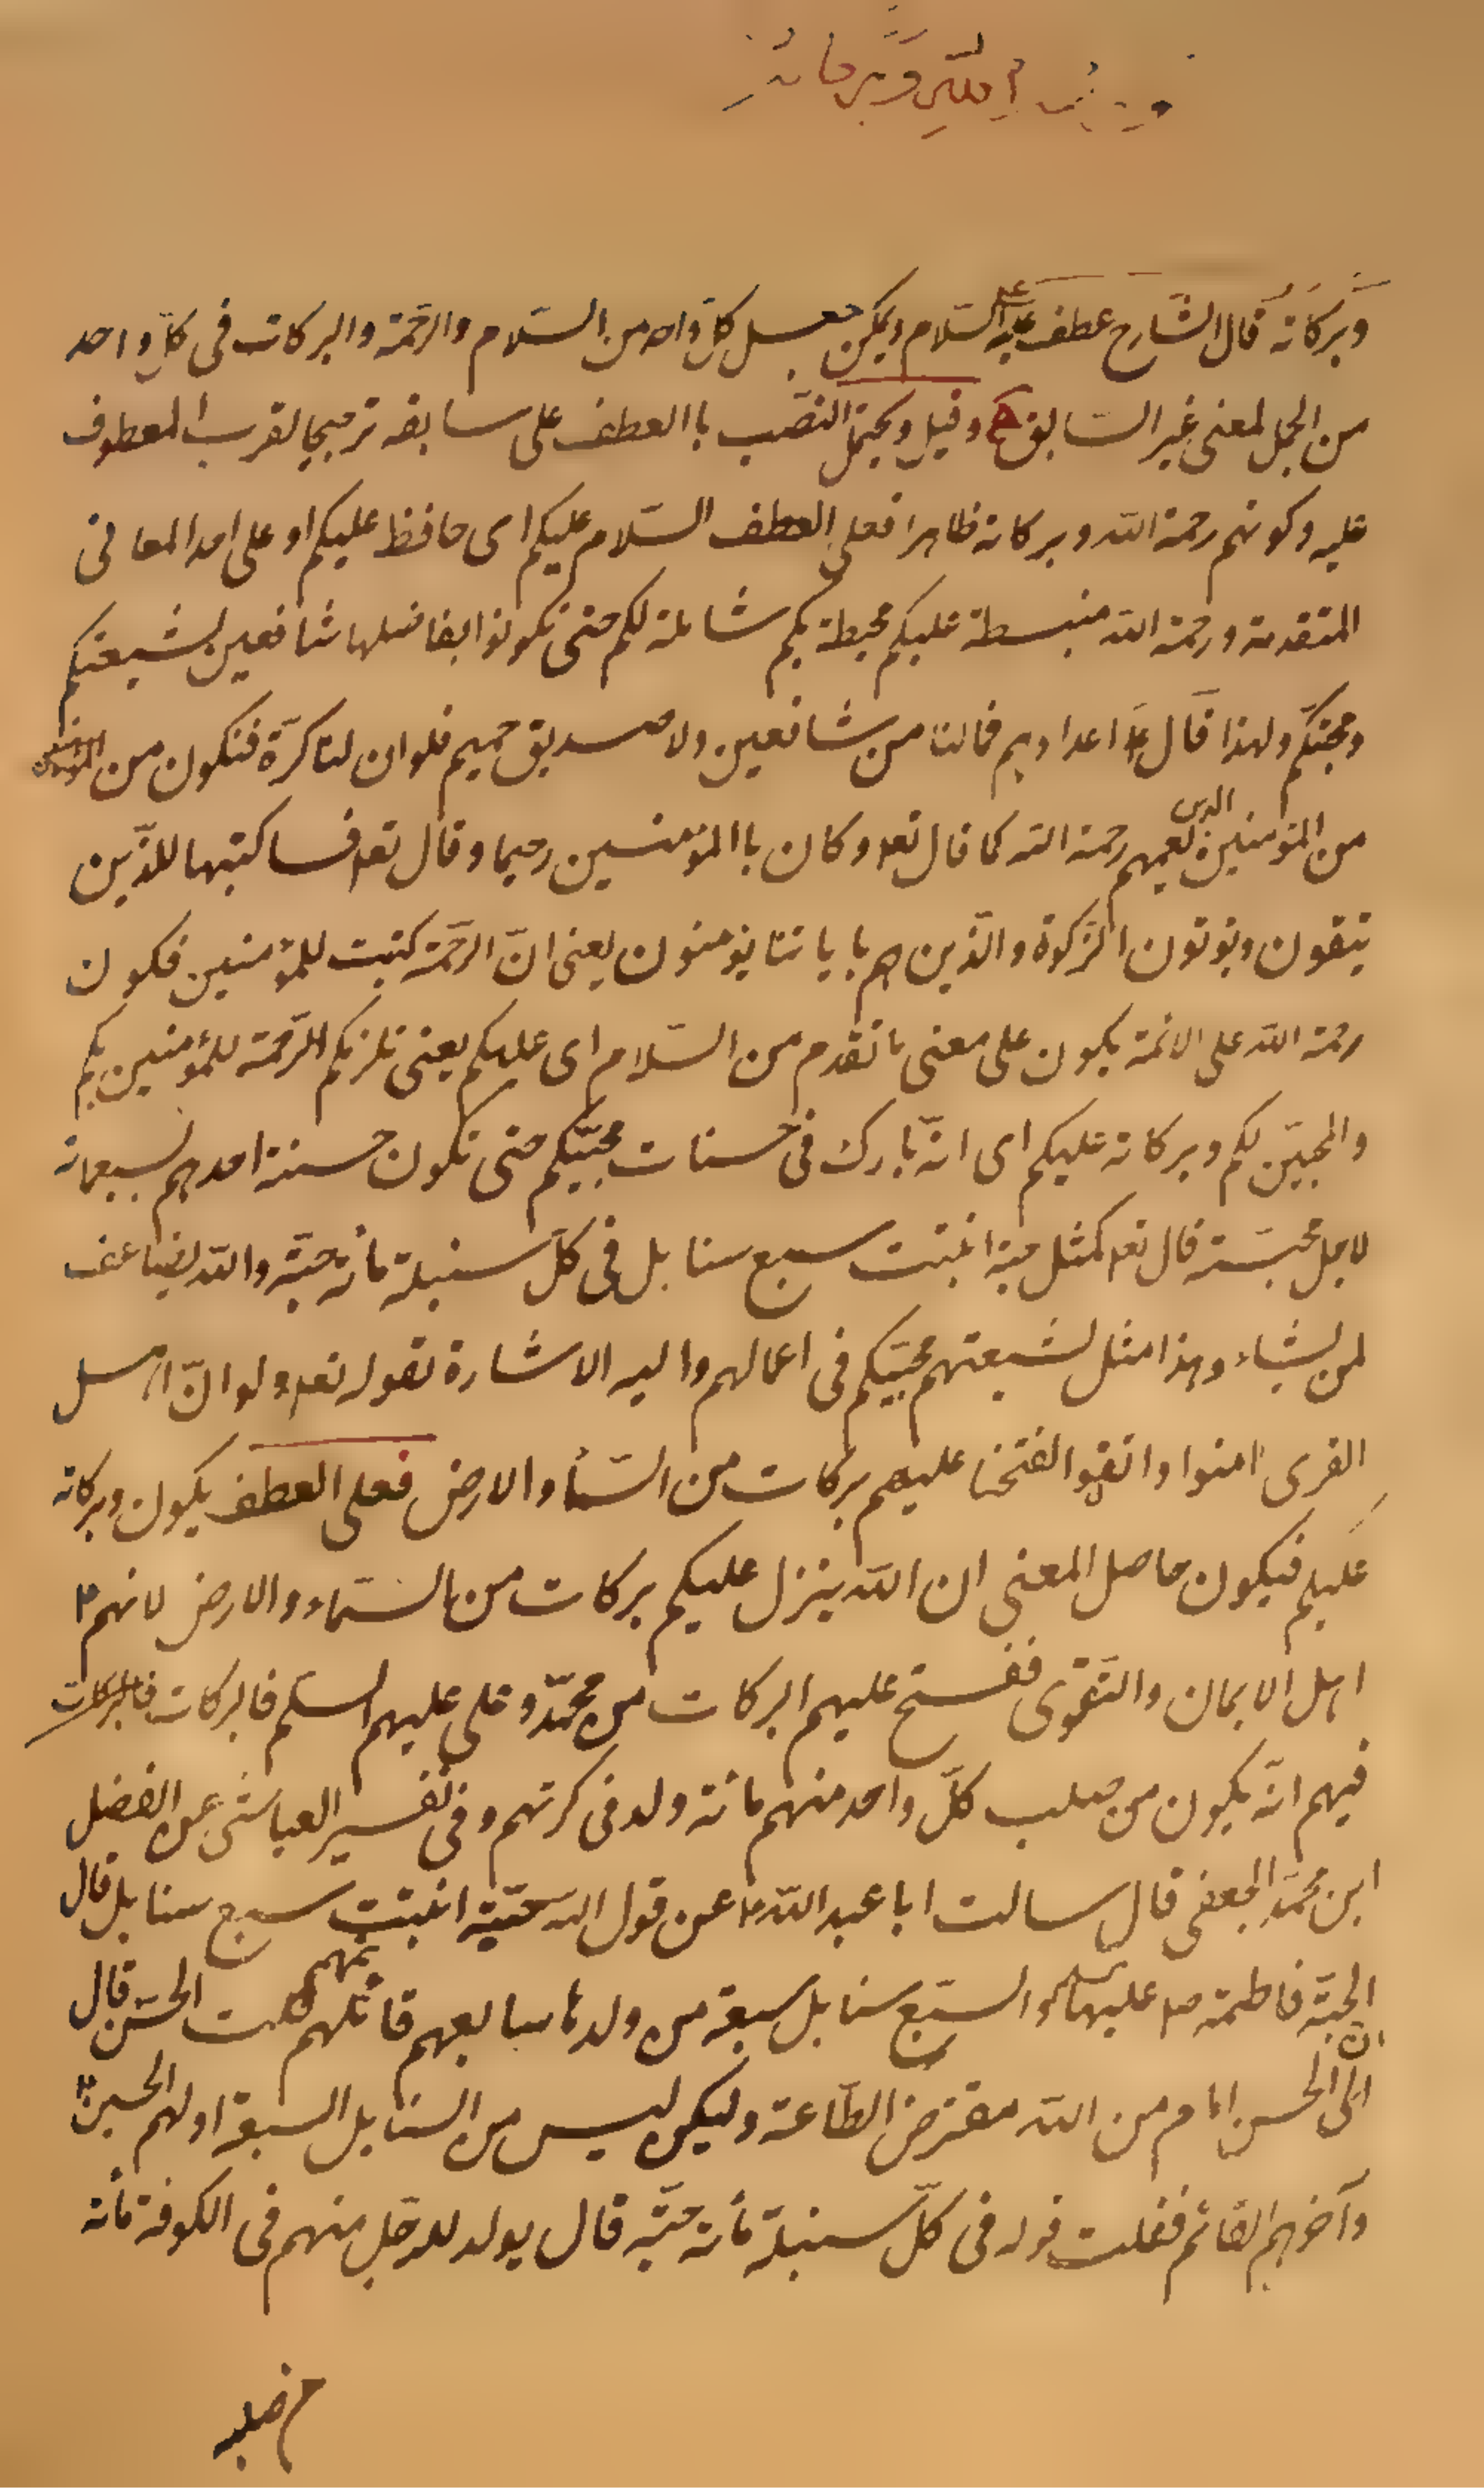 ورحمة الله وبركاته
وبركاته قال الشارح عطف على السلام ويمكن جعل كل واحد من السلام والرحمة والبركات فى كل واحد
من الجمل لمعنى غير السابق وقيل ويحتمل النصب باالعطف على سابقه ترجيحا لقرب المعطوف
عليه وكونهم رحمة الله وبركاته ظاهرا فعلى العطف السلام عليكم اى حافظ عليكم او على احد المعانى
المتقدمة ورحمة الله منبسطة عليكم محيطة بكم شاملة لكم حتى تكونوا بفاضلها شافعين لشيعتكم
ومحبتكم ولهذا قال اعداوهم فمالنا من شافعين ولا صديق حميم فلوان لنا كرة فنكون من المؤمنين
من المؤمنين الذين تعمهم رحمة الله كما قال تعه وكان باالمؤمنين رحيما وقال تعه فساكتبها للذين
يتقون ويوتون الزكوة والذين هم باياتنا يؤمنون يعنى ان الرحمة كتبت للمؤمنين فكون
رحمة الله على الائمة يكون على معنى ما تقدم من السلام اى عليكم يعنى تلزمكم الرحمة للمؤمنين بكم
والمحبين لكم وبركاته عليكم اى انه بارك فى حسنات محبيكم حتى تكون حسنة احدهم بسبعمائة
لاجل محبته قال تعه كمثل حبة انبتت سبع سنابل فى كل سنبلة مائة حبة والله يضاعف
لمن يشاء وهذا مثل لشيعتهم محبيكم فى اعمالهم واليه الاشارة بقوله تعه ولو ان اهل
القرى امنوا واتقوا لفتحنا عليهم بركات من السماء والارض فعلى العطف يكون وبركاته
عليكم فيكون حاصل المعنى ان الله ينزل عليكم بركات من السماء والارض لانهم ع
اهل الايمان والتقوى ففتح عليهم البركات من محمد وعلى عليهم السلم فالبركات فالبركات
فيهم انه يكون من صلب كل واحد منهم مائة ولد فى كرتهم وفى تفسير العياشى عن الفضل
ابن محمد الجعفى قال سالت ابا عبد الله ع عن قول الله حبة انبتت سبع سنابل قال
الحبة فاطمة ص عليها والسبع سنابل سبعة من ولدها سابعهم قائمهم قلت الحسن قال
ان الحسن امام من الله مفترض الطاعة وليكن ليس من السنابل السبعة اولهم الحسين ع
وآخرهم القائم فقلت قوله فى كل سنبلة مائة حبة قال يولد للرجل منهم فى الكوفة مائة